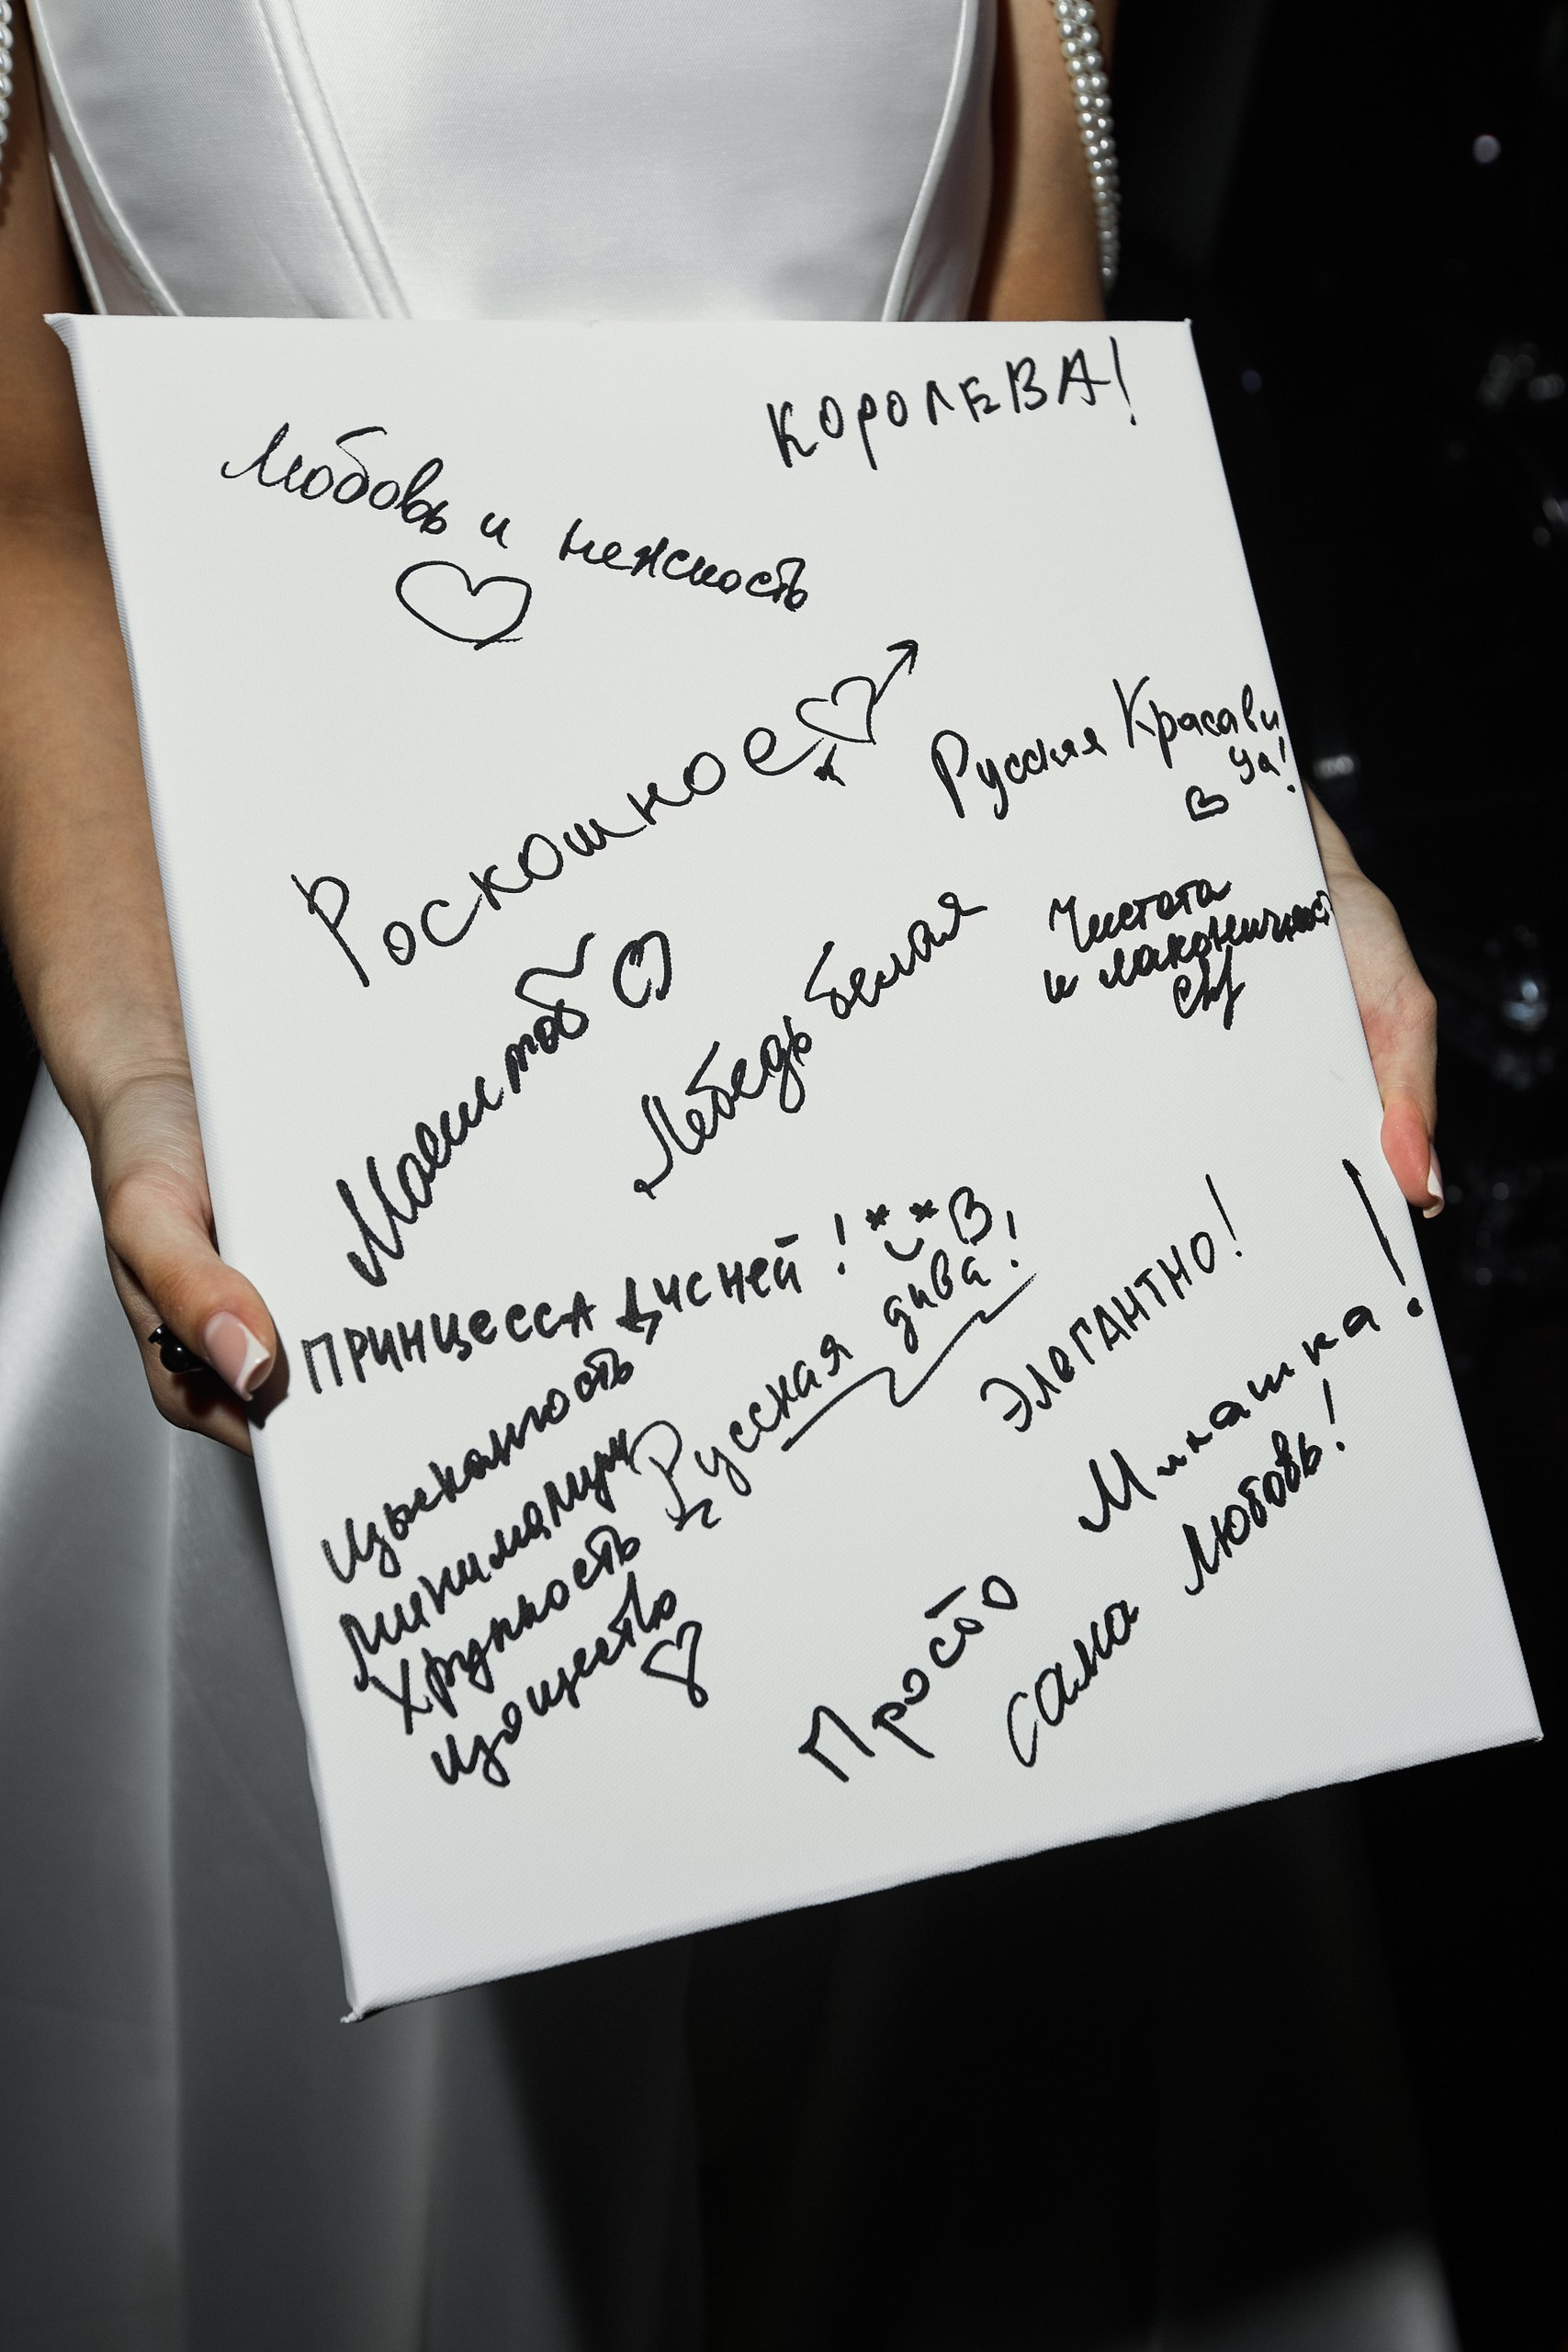 КОРОЛЕВА!
Любовь и нежность
Роскошное
Русская Красави
ца!
Чистота
и лаконичнос
Лебедь белая
ПРИНЦЕССА ДИСНЕЙ!
Русская дива!
ЭЛЕГАНТНО!
изысканность
Хрупкость
изящество
Милашка!
Просто
сама Любовь!